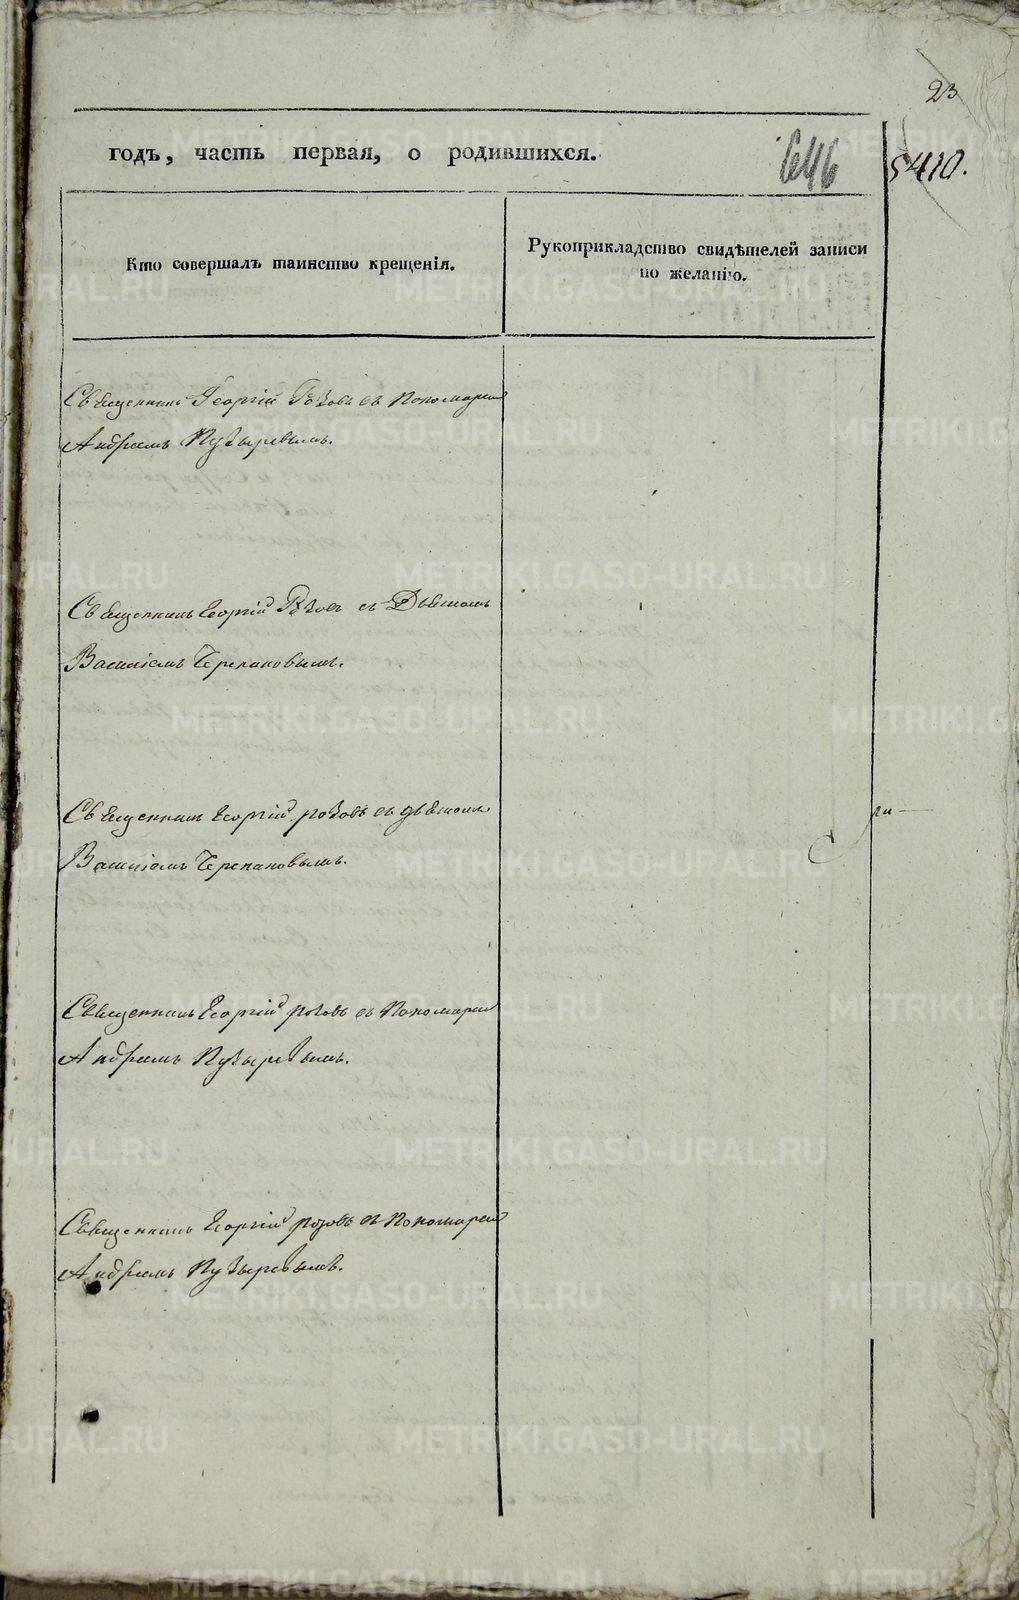 23
годъ, часть первая, о родившихся.
646
5410.
Кто совершалъ таинство крещенія.
Рукоприкладство свидѣтелей записи
по желанію.
Священникъ Георгій Розовъ съ Пономаремъ
Андреемъ Пузыревымъ.
Священникъ Георгій Розовъ съ Дьячкомъ
Василіемъ Черепановымъ.
Священникъ Георгій розовъ съ дьячкомъ
Василіемъ Черепановымъ.
Священникъ Георгій розовъ съ Пономаремъ
Андреемъ Пузыревымъ.
Священникъ Георгій розовъ съ Пономаремъ
Андреемъ Пузыревымъ.
METRIKI.GASO-URAL.RU